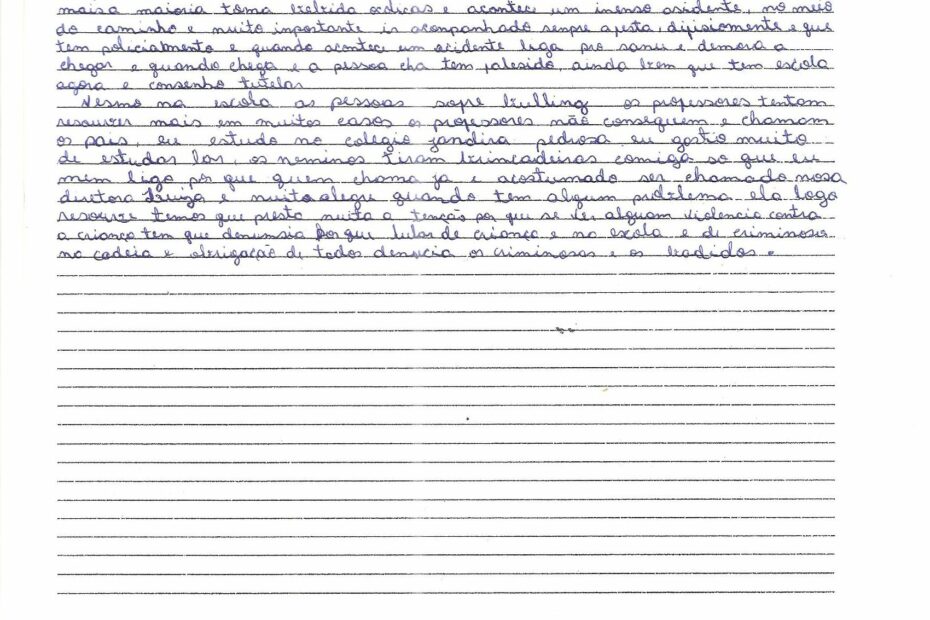 maisa maioria toma bebida ocolicas e acontece um imenso asidente, no meio
do caminho e muito inportante ir acompanhado senpre a festa, difisiomente e que
tem policialmento e quando acontece um acidente liga pro samu e demora a
chegar e quando chega e a pessoa cha tem falesido, ainda bem que tem escola
agora e consenho tutelar
Mesmo na escola as pessoas sofre bulling os professores tentam
resouver mais em muitos casos os professores não conseguem e chamam
os pais, eu estudo no colegio jandira pedrosa eu gosto muito
de estudar lar, os meninos tiram brincadeiras comigo so que eu
nem ligo por que quem chama ja e acostumado ser chamado nosa
diretora Luiza e muito alegre quando tem algum problema ela logo
resouve temos que presta muita a tenção por que se ver alguam violencia contra
a criança tem que denunsia porque lular de criança e na escola e de criminoso
na cadeia e obrigação de todos denucia os criminosos e os badidos.